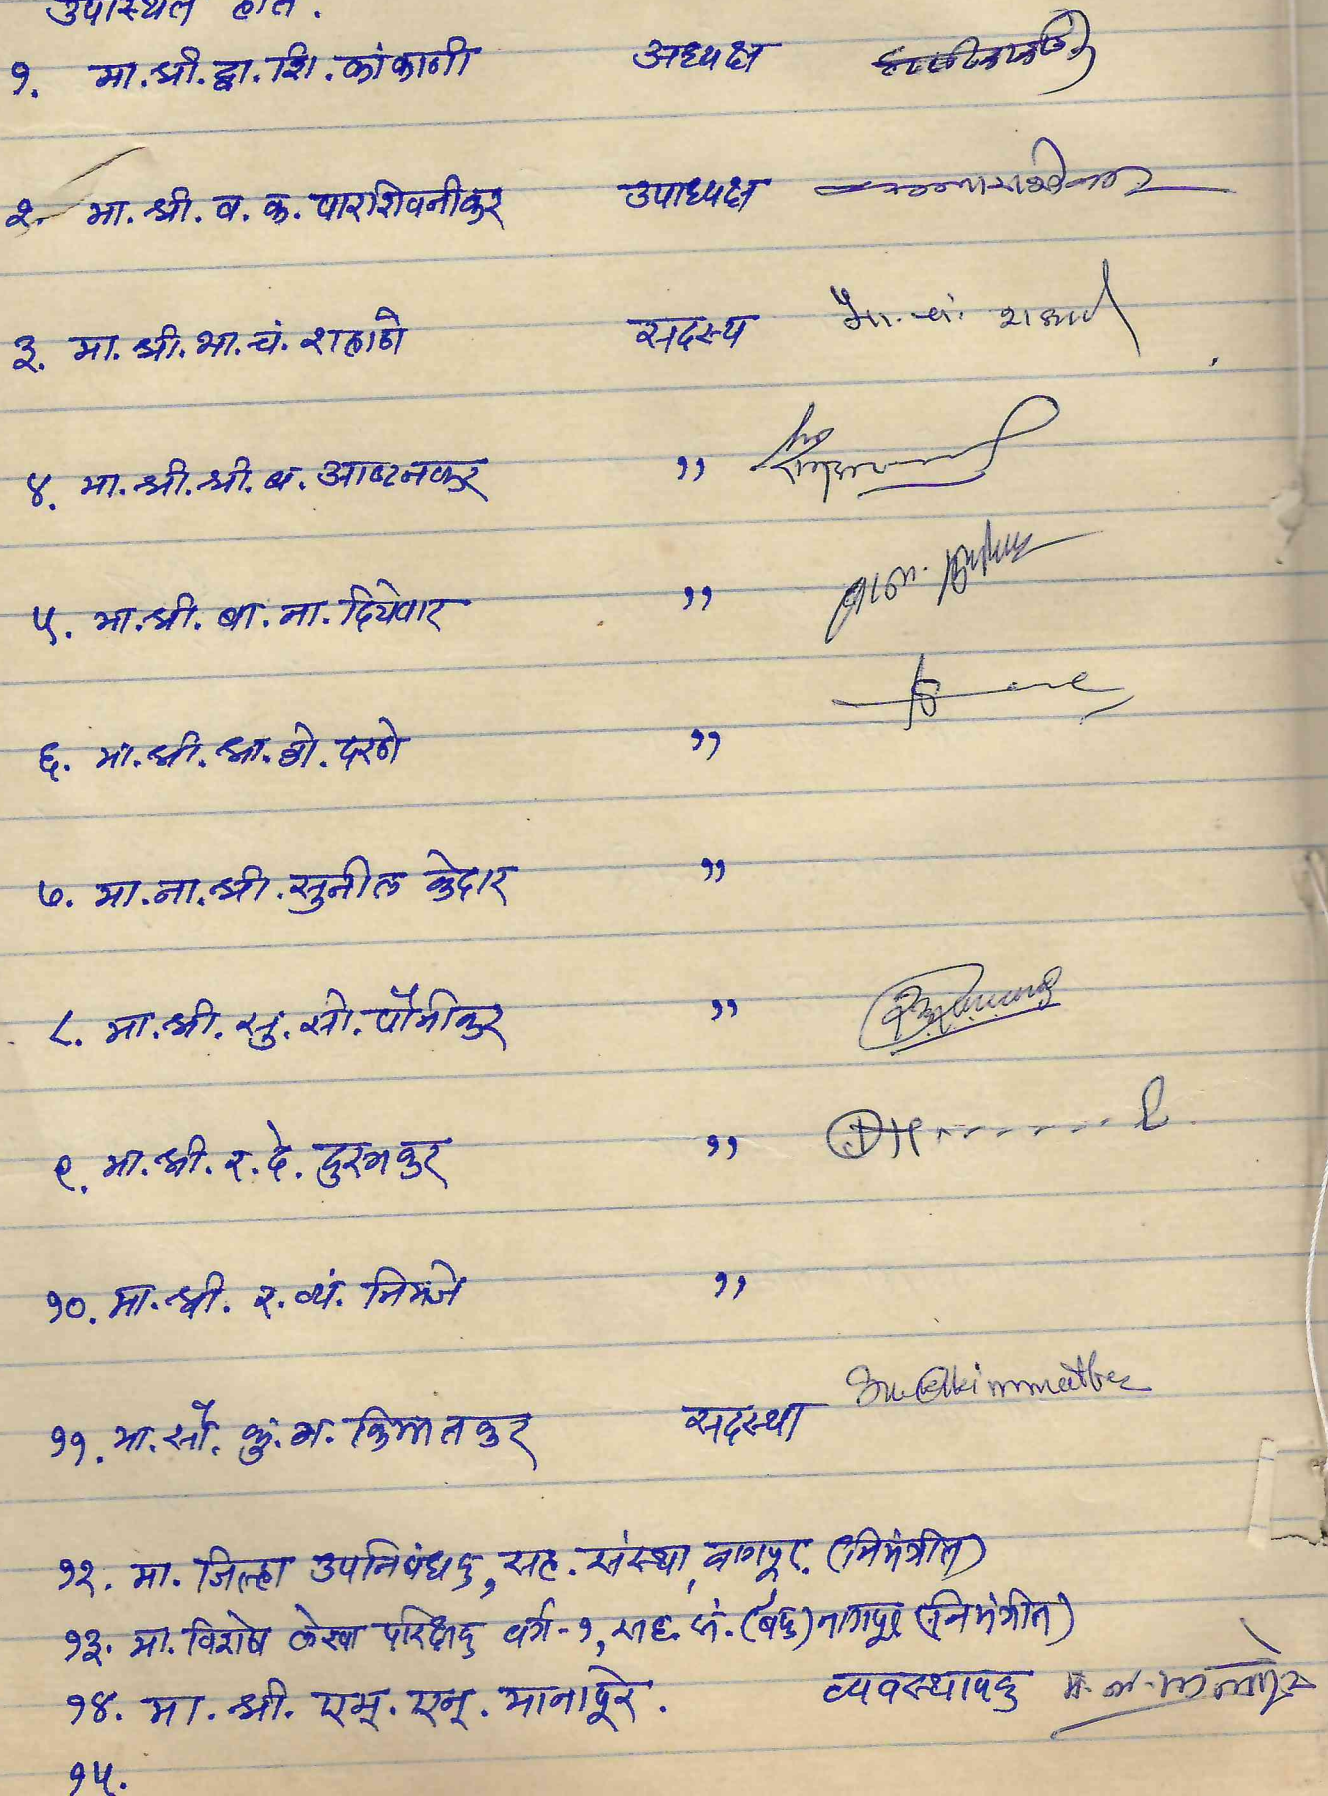 उपस्थित होते.
१. मा.श्री.द्वा.शि.कांकाणी अध्यक्ष
२. मा.श्री.व.क.पारशिवनीकर उपाध्यक्ष
३. मा.श्री.भा.चं.शहाणे सदस्य भा.चं. शहाणे
४. मा.श्री.श्री.ब.आष्टनकर ,,
५. मा.श्री.बा.ना.दियेवार ,,
६. मा.श्री.श्रा.डो.दरणे ,,
७. मा.ना.श्री.सुनील केदार ,,
८. मा.श्री.सु.सो.पौनीकर ,,
९. मा.श्री.र.दे.दुरुगकर ,,
१०. मा.श्री.र.व्यं.निमजे ,,
११. मा.सौ.कुं.म.किंमतकर सदस्या
१२. मा. जिल्हा उपनिबंधक, सह.संस्था, नागपूर. (निमंत्रीत)
१३. मा.विशेष लेखा परिक्षक वर्ग-१, सह.सं.(बँक) नागपूर (निमंत्रीत)
१४. मा.श्री.एम्.एन्.मानापूरे. व्यवस्थापक
१५.